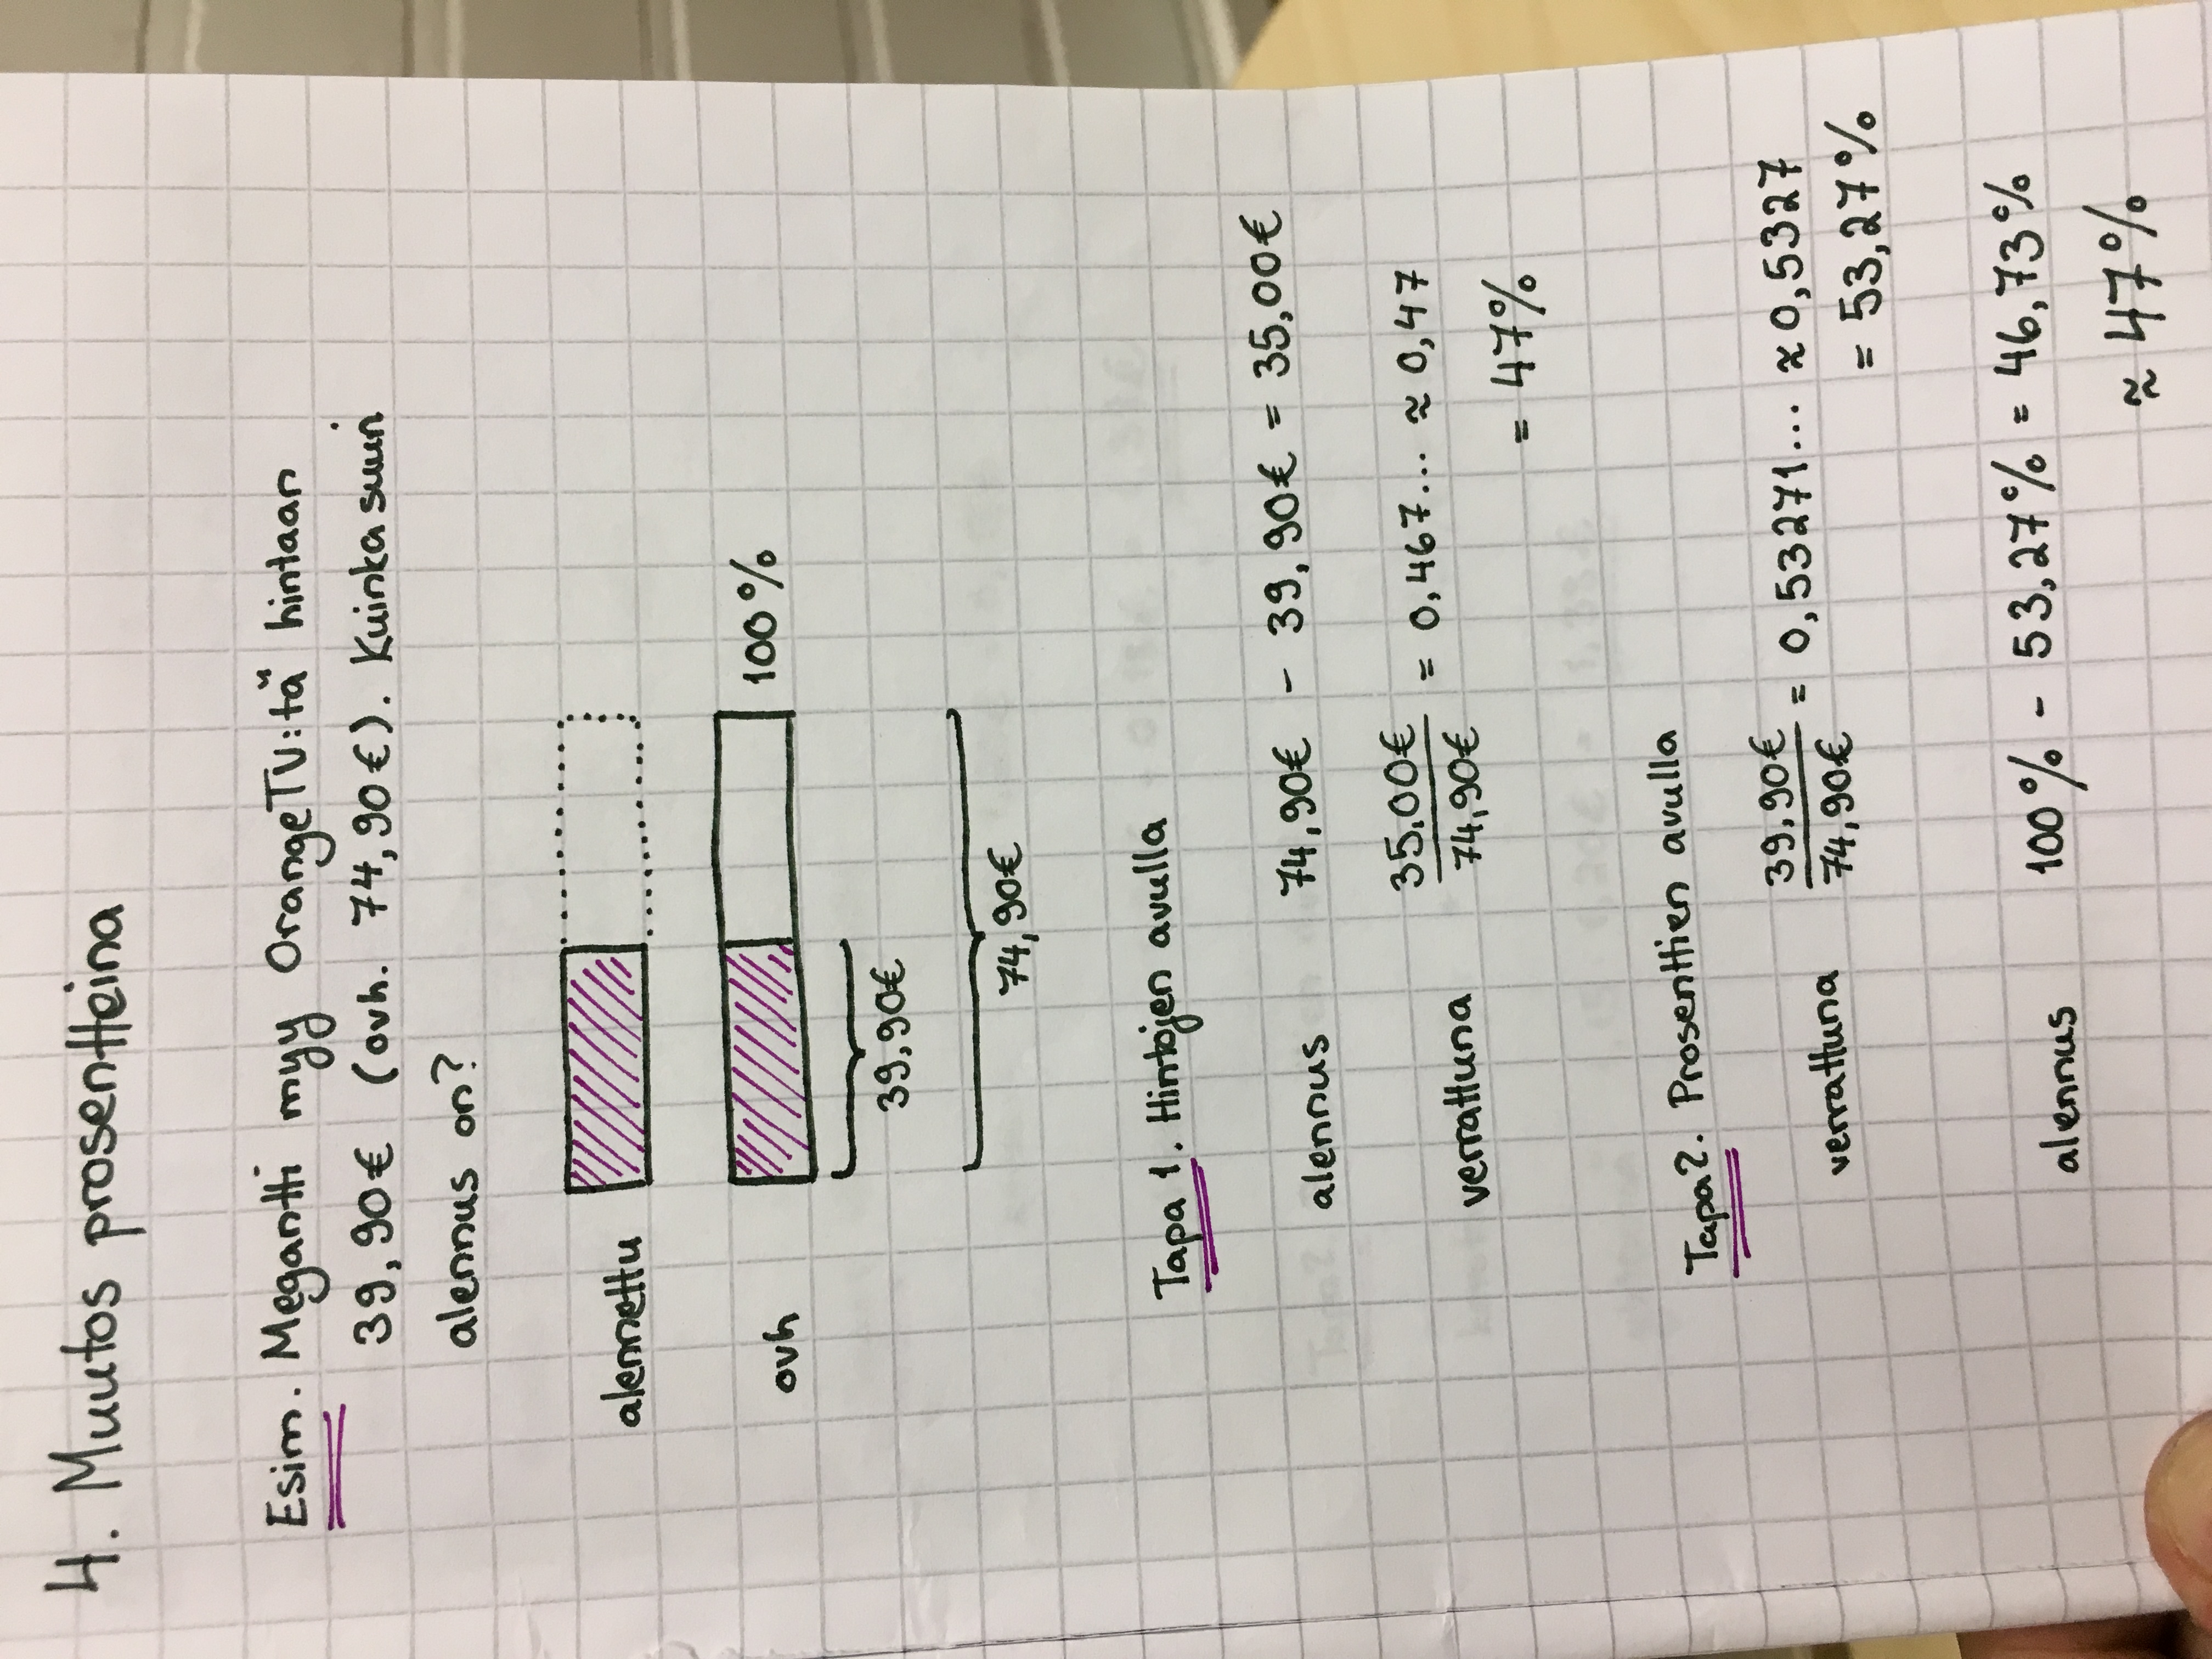 4. Muutos prosentteina
Esim. Megantti myy OrangeTV:tä hintaan
39,90€ (ovh. 74,90€). Kuinka suuri
alennus on?
alennettu
ovh 100%
39,90€
74,90€
Tapa 1. Hintojen avulla
alennus 74,90€ - 39,90€ = 35,00€
verrattuna 35,00€/74,90€ = 0,467... ≈ 0,47
= 47%
Tapa 2. Prosenttien avulla
verrattuna 39,90€/74,90€ = 0,53271... ≈ 0,5327
= 53,27%
alennus 100% - 53,27% = 46,73%
≈ 47%